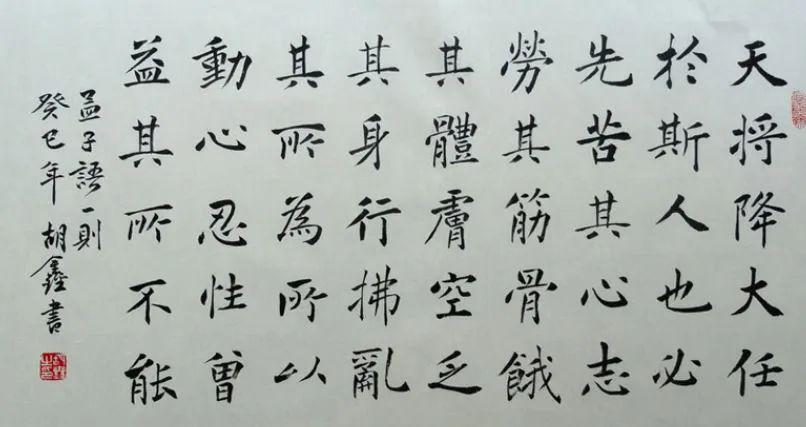 天将降大任
於斯人也必
先苦其心志
勞其筋骨餓
其體膚空乏
其身行拂亂
其所為所以
動心忍性曾
益其所不能
孟子語一則
癸巳年胡鑫書